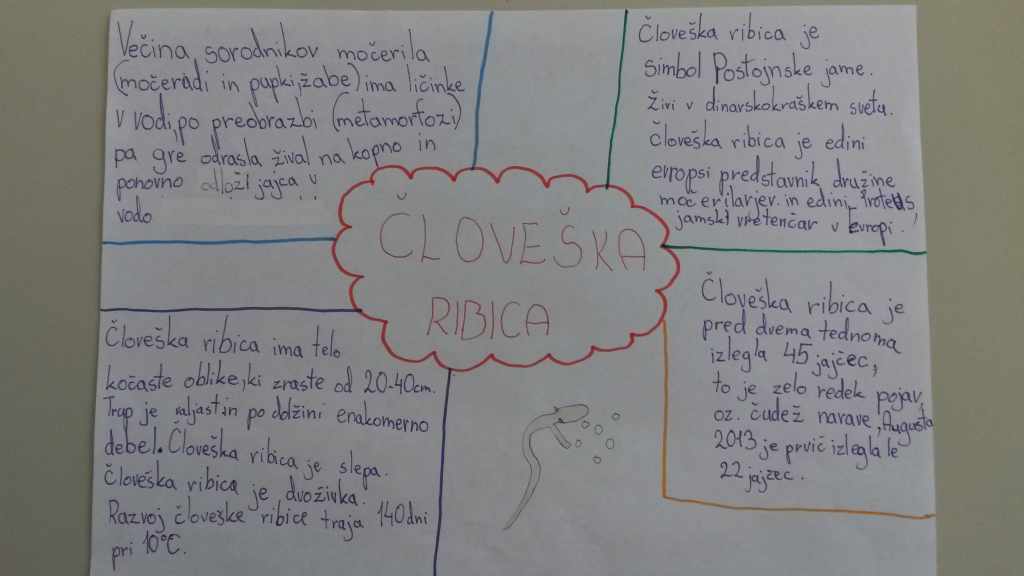 Večina sorodnikov močerila
(močeradi in pupki,žabe) ima ličinke
v vodi,po preobrazbi (metamorfozi)
pa gre odrasla žival na kopno in
ponovno odloži jajca v
vodo
Človeška ribica je
simbol Postojnske jame.
Živi v dinarskokraškem svetu.
Človeška ribica je edini
evropsi predstavnik družine
močerilarjev. in edini
jamski vretenčar v Evropi.
ČLOVEŠKA
RIBICA
Človeška ribica ima telo
kočaste oblike,ki zraste od 20-40cm.
Trup je valjast in po dolžini enakomerno
debel. Človeška ribica je slepa.
Človeška ribica je dvoživka.
Razvoj človeške ribice traja 140 dni
pri 10°C.
Človeška ribica je
pred dvema tednoma
izlegla 45 jajčec,
to je zelo redek pojav,
oz. čudež narave, Augusta
2013 je prvič izlegla le
22 jajčec.